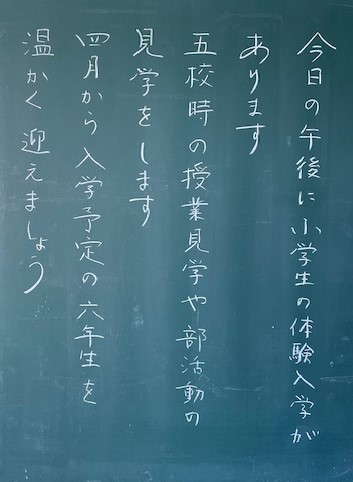 今日の午後に小学生の体験入学が
あります
五校時の授業見学や部活動の
見学をします
四月から入学予定の六年生を
温かく迎えましょう